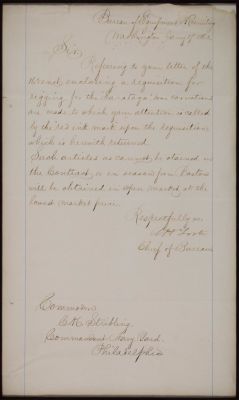 Bureau of Equipment & Recruiting
Washington
Sir,
Referring to your letter of the
enclosing a requisition for
rigging for the "Saratoga" some variations
are made to which your attention is called
by the red ink mark upon the requisition
which is herewith returned.
Such articles as cannot be obtained on
the Contract, in season for Easton
will be obtained in open market at the
lowest market price.
Respectfully
A H Foote
Chief of Bureau
Commodore
C K Stribling,
Commandant Navy Yard,
Philadelphia